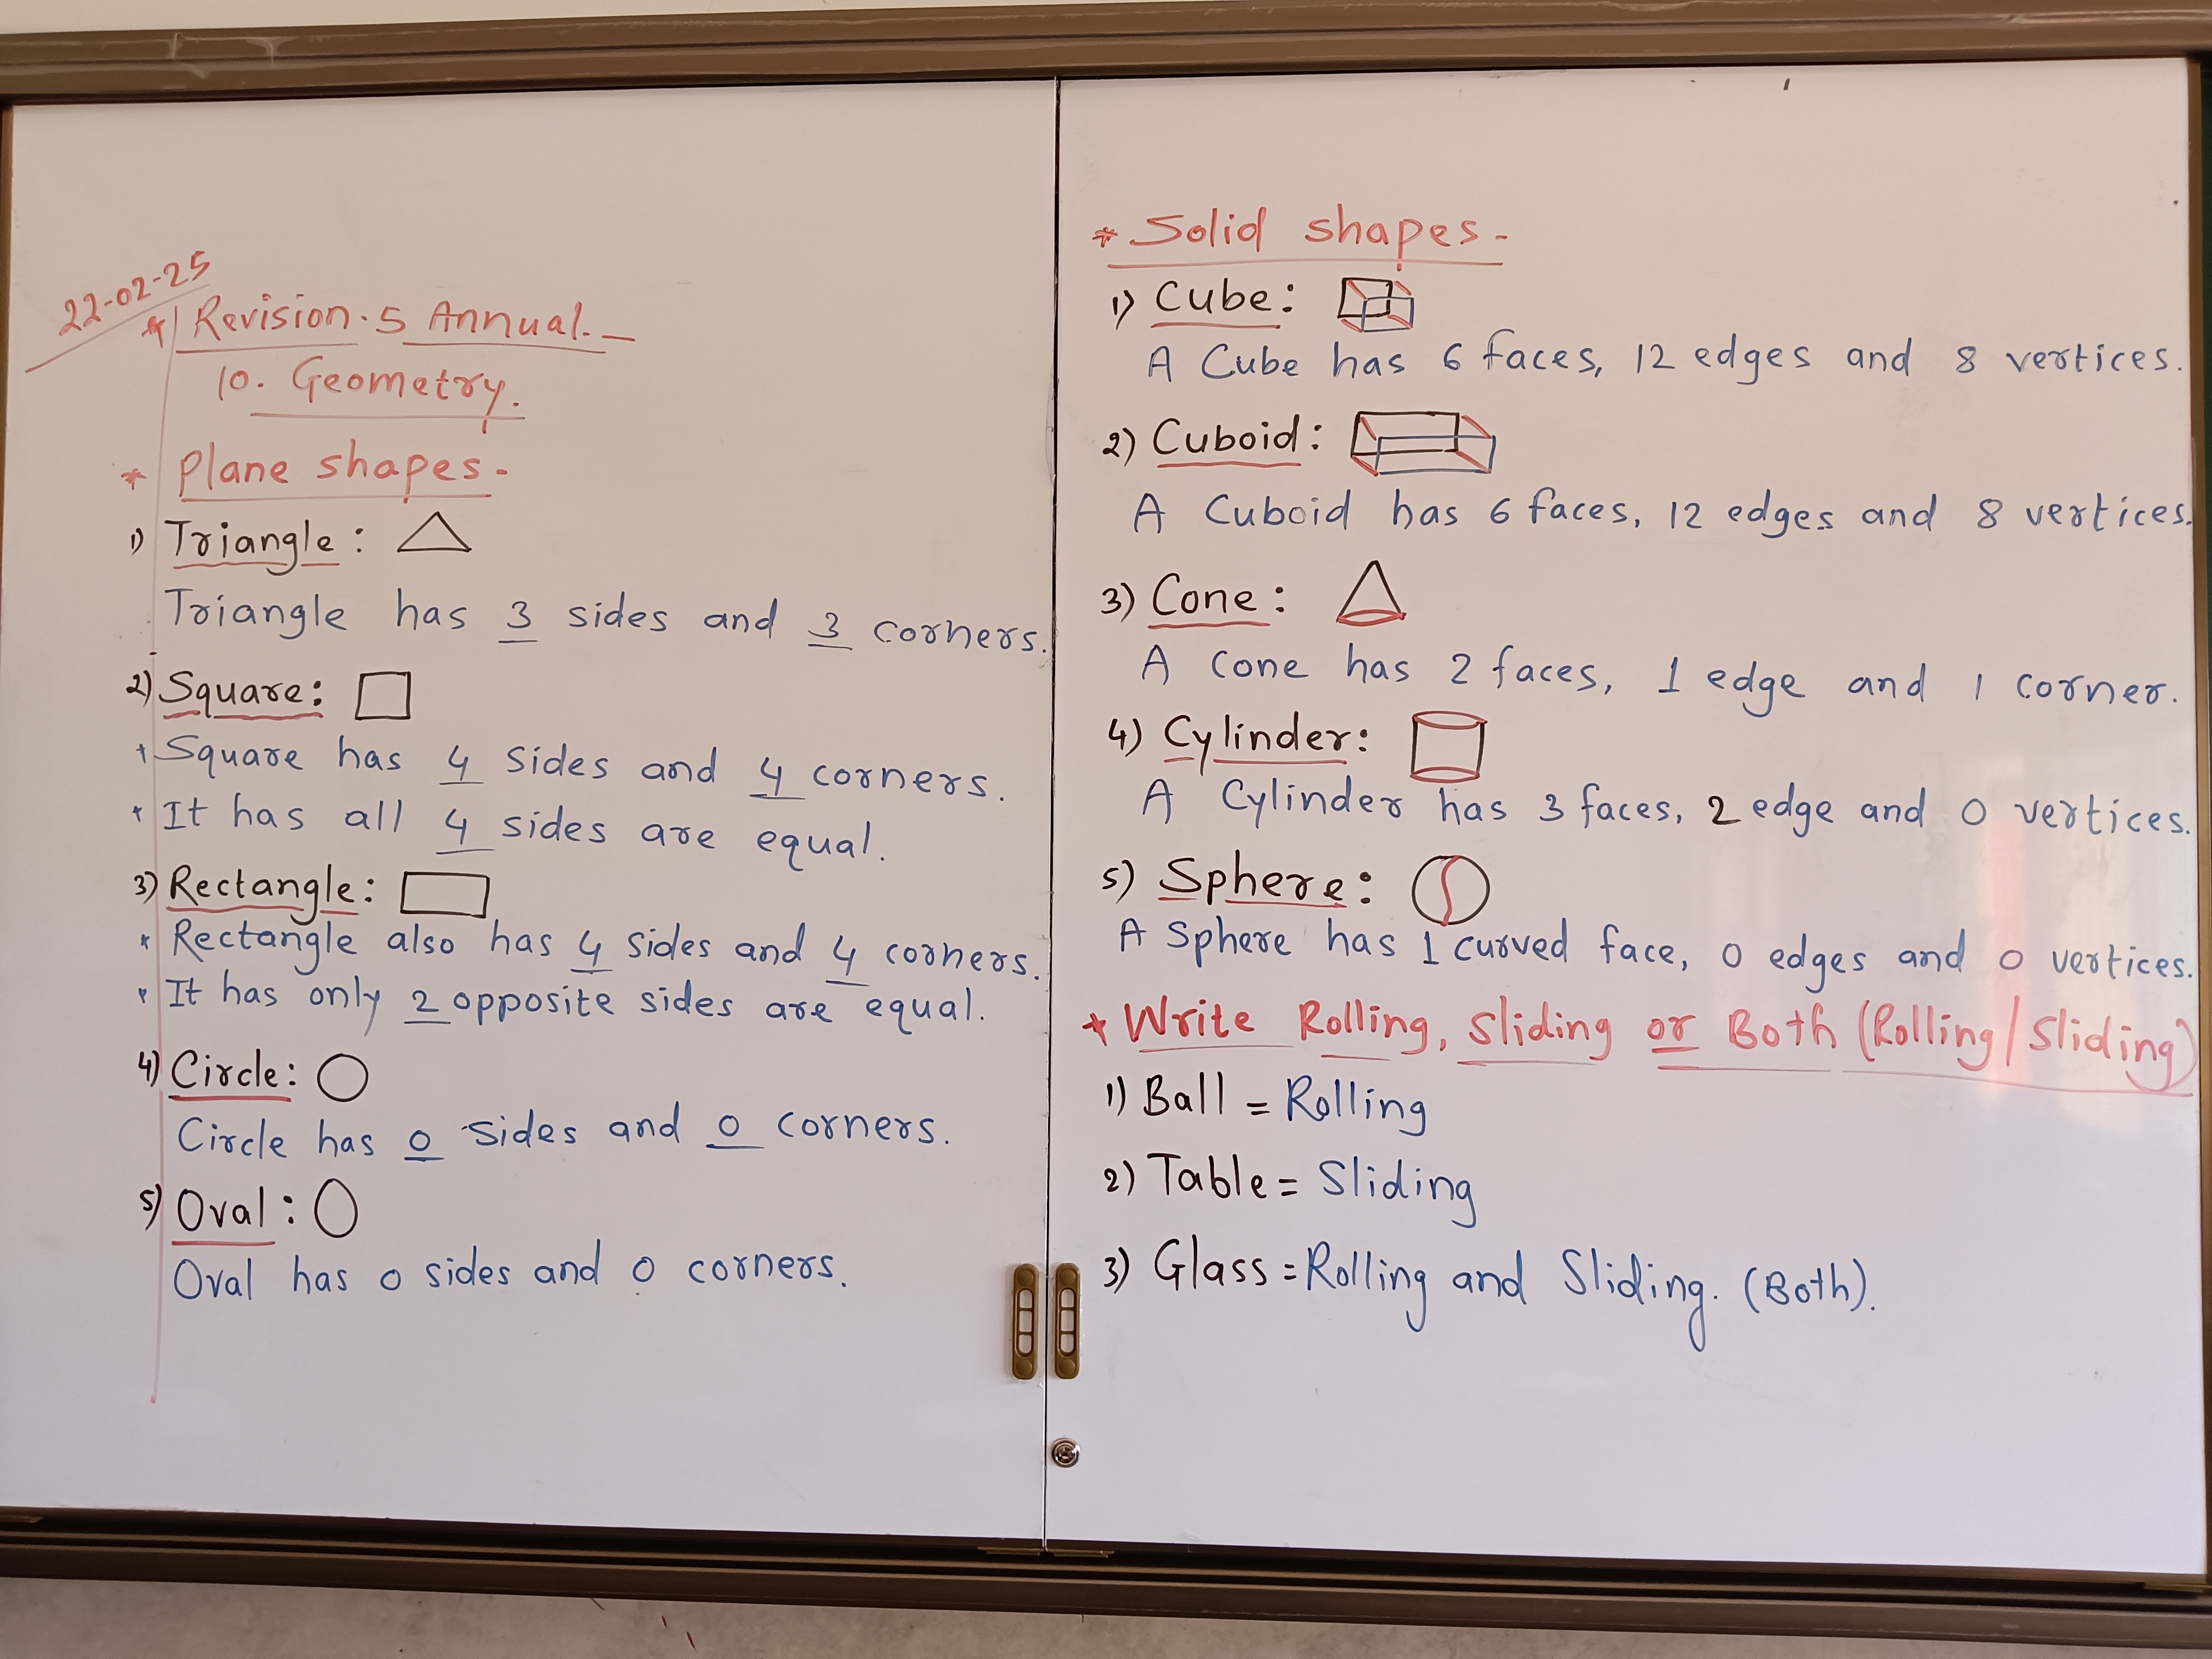 22-02-25
* Revision.5 Annual.
10. Geometry.
* Plane shapes-
1) Triangle:
Triangle has 3 sides and 3 corners.
2) Square:
* Square has 4 sides and 4 corners.
* It has all 4 sides are equal.
3) Rectangle:
* Rectangle also has 4 sides and 4 corners.
* It has only 2 opposite sides are equal.
4) Circle:
Circle has 0 sides and 0 corners.
5) Oval:
Oval has 0 sides and 0 corners.
* Solid shapes-
1) Cube:
A Cube has 6 faces, 12 edges and 8 vertices.
2) Cuboid:
A Cuboid has 6 faces, 12 edges and 8 vertices.
3) Cone:
A Cone has 2 faces, 1 edge and 1 corner.
4) Cylinder:
A Cylinder has 3 faces, 2 edge and 0 vertices.
5) Sphere:
A Sphere has 1 curved face, 0 edges and 0 vertices.
* Write Rolling, Sliding or Both (Rolling/Sliding)
1) Ball = Rolling
2) Table = Sliding
3) Glass = Rolling and Sliding. (Both).